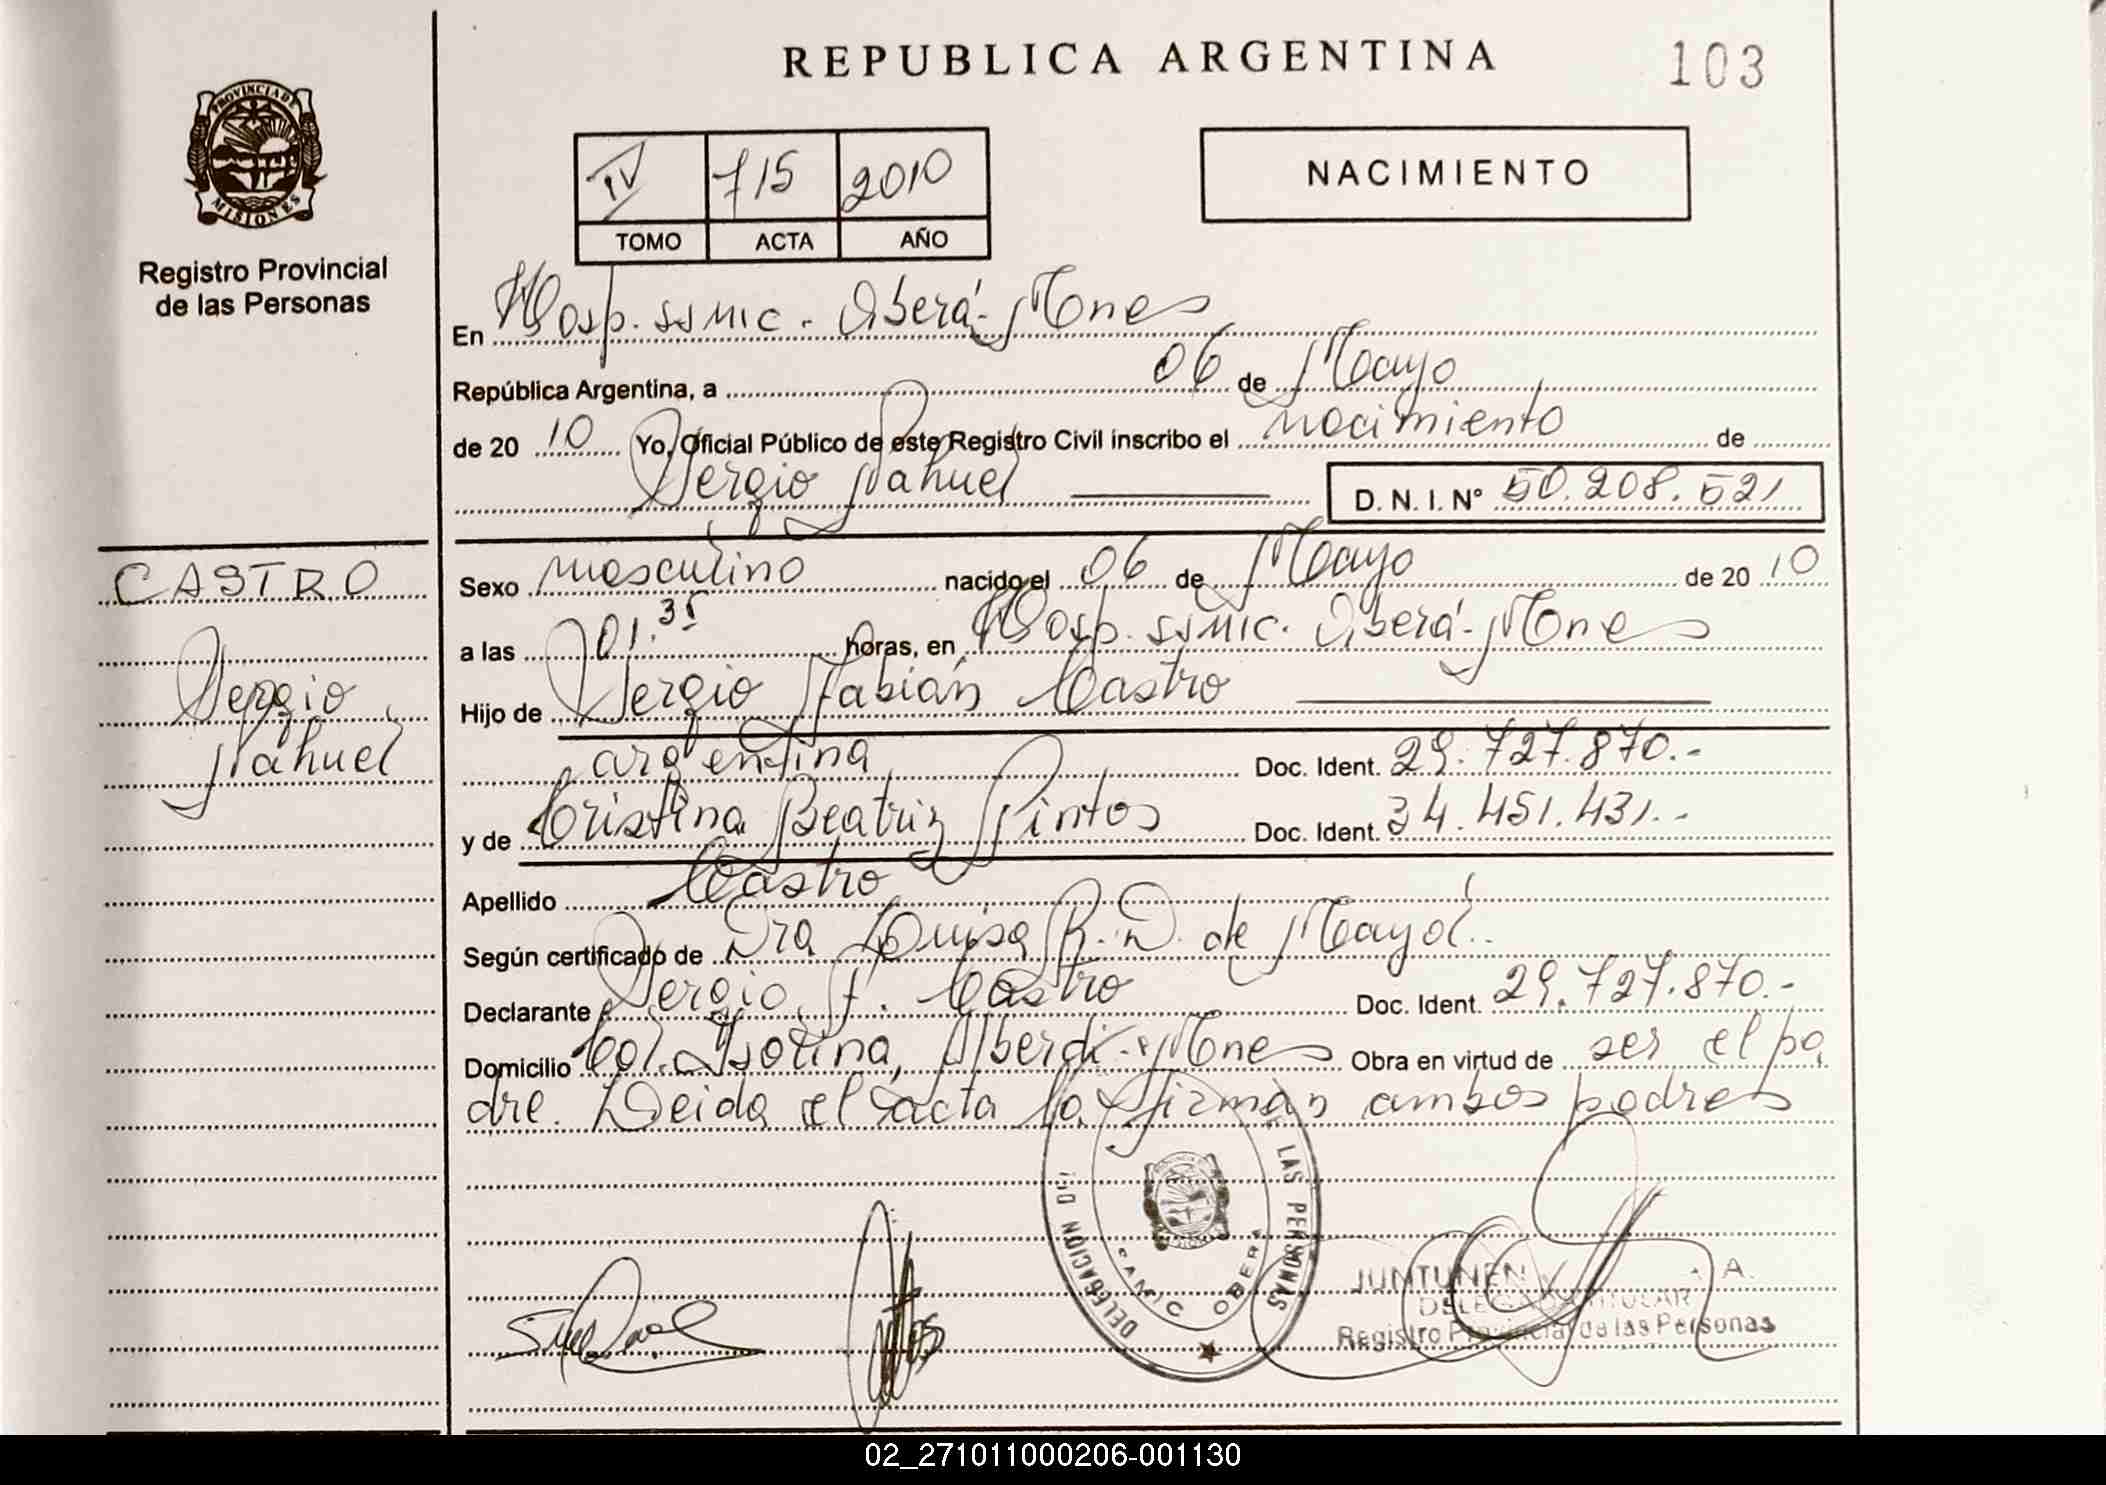 REPUBLICA ARGENTINA
103
PROVINCIA DE
MISIONES
Registro Provincial
de las Personas
IV 715 2010
TOMO ACTA AÑO
NACIMIENTO
En Hosp. SSMIC. Oberá - Mnes
República Argentina, a 06 de Mayo
de 20 10 Yo, Oficial Público de este Registro Civil inscribo el nacimiento de
Sergio Nahuel
D. N. I. Nº 50.208.521
CASTRO
Sergio
Nahuel
Sexo masculino nacido el 06 de Mayo de 20 10
a las 01.35 horas, en Hosp. SSMIC. Oberá - Mnes
Hijo de Sergio Fabián Castro
argentina Doc. Ident. 29.727.870.-
y de Cristina Beatriz Pintos Doc. Ident. 34.451.431.-
Apellido Castro
Según certificado de Dra Luisa R. D. de Mayol.
Declarante Sergio F. Castro Doc. Ident. 29.727.870.-
Domicilio Col. Isolina, Alberdi - Mnes Obra en virtud de ser el pa
dre. Leida el acta la firman ambos padres
DELEGACION DEL
DE LAS PERSONAS
SAMIC OBERA
JUNTUNEN A.
DELEGADA TITULAR
Registro Provincial de las Personas
02_271011000206-001130